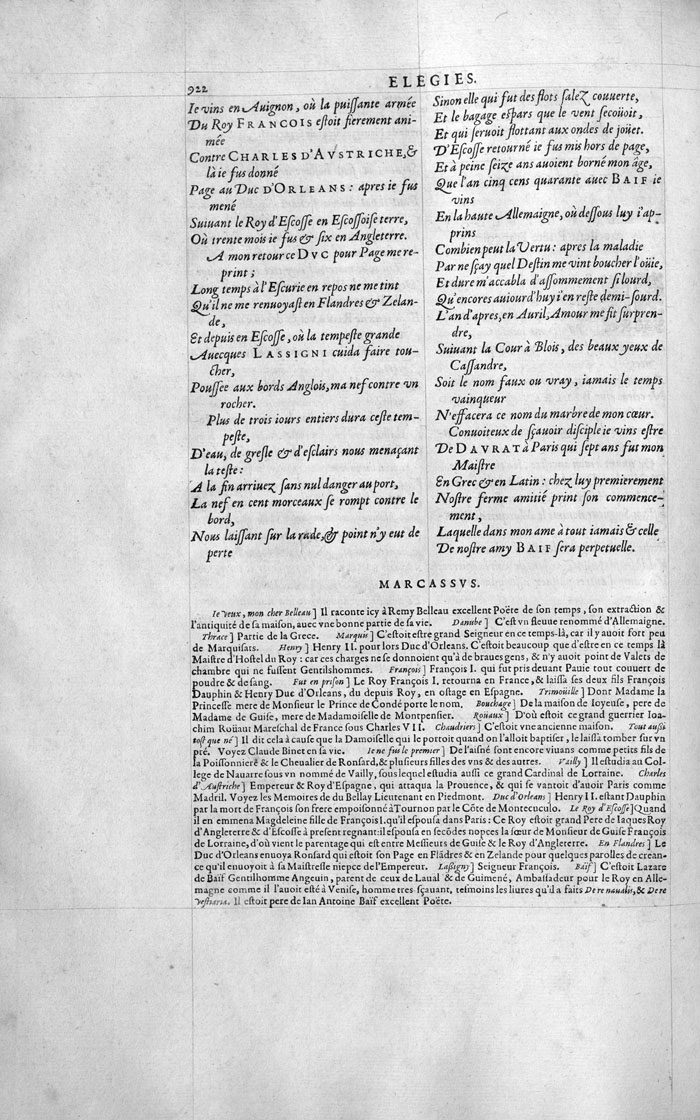 922
ELEGIES.
Ie vins en Auignon, où la puissante armée
Du Roy FRANCOIS estoit fierement ani-
mée
Contre CHARLES D'AVSTRICHE, &
là ie fus donné
Page au Duc D'ORLEANS: apres ie fus
mené
Suiuant le Roy d'Escosse en Escossoise terre,
Où trente mois ie fus & six en Angleterre.
A mon retour ce DVC pour Page me re-
print;
Long temps à l'Escurie en repos ne me tint
Qu'il ne me renuoyast en Flandres & Zelan-
de,
Et depuis en Escosse, où la tempeste grande
Auecques LASSIGNI cuida faire tou-
cher,
Poussee aux bords Anglois, ma nef contre vn
rocher.
Plus de trois iours entiers dura ceste tem-
peste,
D'eau, de gresle & d'esclairs nous menaçant
la teste:
A la fin arriuez sans nul danger au port,
La nef en cent morceaux se rompt contre le
bord,
Nous laissant sur la rade, & point n'y eut de
perte
Sinon elle qui fut des flots salez couuerte,
Et le bagage espars que le vent secoüoit,
Et qui seruoit flottant aux ondes de joüet.
D'Escosse retourné ie fus mis hors de page,
Et à peine seize ans auoient borné mon âge,
Que l'an cinq cens quarante auec BAIF ie
vins
En la haute Allemaigne, où dessous luy i'ap-
prins
Combien peut la Vertu: apres la maladie
Par ne sçay quel Destin me vint boucher l'oüie,
Et dure m'accabla d'assommement si lourd,
Qu'encores auiourd'huy i'en reste demi-sourd.
L'an d'apres, en Auril, Amour me fit surpren-
dre,
Suiuant la Cour à Blois, des beaux yeux de
Cassandre,
Soit le nom faux ou vray, iamais le temps
vainqueur
N'effacera ce nom du marbre de mon cœur.
Conuoiteux de sçauoir disciple ie vins estre
De DAVRAT à Paris qui sept ans fut mon
Maistre
En Grec & en Latin: chez luy premierement
Nostre ferme amitié print son commence-
ment,
Laquelle dans mon ame à tout iamais & celle
De nostre amy BAIF sera perpetuelle.
MARCASSVS.
Ie veux, mon cher Belleau] Il raconte icy à Remy Belleau excellent Poëte de son temps, son extraction &
l'antiquité de sa maison, auec vne bonne partie de sa vie. Danube] C'est vn fleuue renommé d'Allemaigne.
Thrace] Partie de la Grece. Marquis] C'estoit estre grand Seigneur en ce temps-là, car il y auoit fort peu
de Marquisats. Henry] Henry II. pour lors Duc d'Orleans. C'estoit beaucoup que d'estre en ce temps là
Maistre d'Hostel du Roy: car ces charges ne se donnoient qu'à de braues gens, & n'y auoit point de Valets de
chambre qui ne fussent Gentilshommes. François] François I. qui fut pris deuant Pauie tout couuert de
poudre & de sang. Fut en prison] Le Roy François I, retourna en France, & laissa ses deux fils François
Dauphin & Henry Duc d'Orleans, du depuis Roy, en ostage en Espagne. Trimoüille] Dont Madame la
Princesse mere de Monsieur le Prince de Condé porte le nom. Bouchage] De la maison de Ioyeuse, pere de
Madame de Guise, mere de Madamoiselle de Montpensier. Roüaux] D'où estoit ce grand guerrier Ioa-
chim Roüaut Mareschal de France sous Charles VII. Chaudriers] C'estoit vne ancienne maison. Tout aussi
tost que né] Il dit cela à cause que la Damoiselle qui le portoit quand on l'alloit baptiser, le laissa tomber sur vn
pré. Voyez Claude Binet en sa vie. Ie ne fus le premier] De l'aisné sont encore viuans comme petits fils de
la Poissonniere & le Cheualier de Ronsard, & plusieurs filles des vns & des autres. Vailly] Il estudia au Col-
lege de Nauarre sous vn nommé de Vailly, sous lequel estudia aussi ce grand Cardinal de Lorraine. Charles
d'Austriche] Empereur & Roy d'Espagne, qui attaqua la Prouence, & qui se vantoit d'auoir Paris comme
Madril. Voyez les Memoires de du Bellay Lieutenant en Piedmont. Duc d'Orleans] Henry II. estant Dauphin
par la mort de François son frere empoisonné à Tournon par le Côte de Montecuculo. Le Roy d'Escosse] Quand
il en emmena Magdeleine fille de François I. qu'il espousa dans Paris: Ce Roy estoit grand Pere de Iaques Roy
d'Angleterre & d'Escosse à present regnant: il espousa en secõdes nopces la sœur de Monsieur de Guise François
de Lorraine, d'où vient le parentage qui est entre Messieurs de Guise & le Roy d'Angleterre. En Flandres] Le
Duc d'Orleans enuoya Ronsard qui estoit son Page en Flãdres & en Zelande pour quelques parolles de crean-
ce qu'il enuoyoit à sa Maistresse niepce de l'Empereur. Lassigny] Seigneur François. Baïf] C'estoit Lazare
de Baïf Gentilhomme Angeuin, parent de ceux de Laual & de Guimené, Ambassadeur pour le Roy en Alle-
magne comme il l'auoit esté à Venise, homme tres sçauant, tesmoins les liures qu'il a faits De re nauali, & De re
vestiaria. Il estoit pere de Ian Antoine Baïf excellent Poëte.